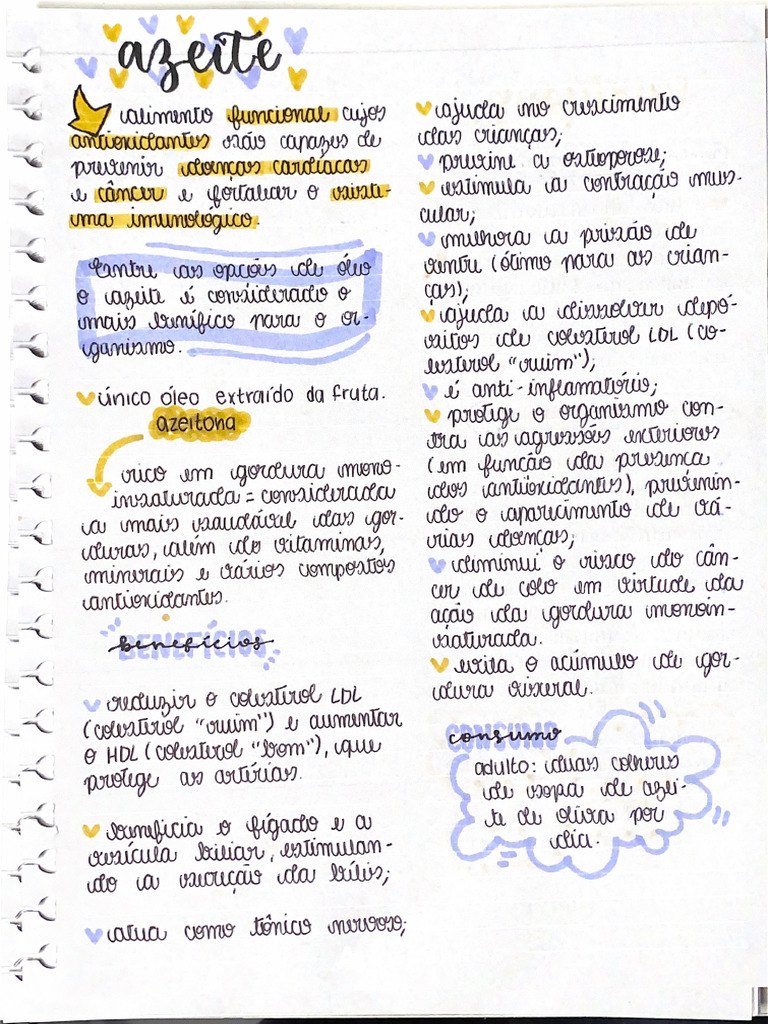 azeite
alimento funcional cujos
antioxidantes são capazes de
prevenir doenças cardíacas
e câncer e fortalecer o siste-
ma imunológico.
Entre as opções de óleo
o azeite é considerado o
mais benéfico para o or-
ganismo.
único óleo extraído da fruta.
azeitona
rico em gordura mono-
insaturada = considerada
a mais saudável das gor-
duras, além de vitaminas,
minerais e vários compostos
antioxidantes.
BENEFÍCIOS
benefícios
reduzir o colesterol LDL
(colesterol "ruim") e aumentar
o HDL (colesterol "bom"), que
protege as artérias.
beneficia o fígado e a
vesícula biliar, estimulan-
do a secreção da bílis;
atua como tônico nervoso;
ajuda no crescimento
das crianças;
previne a osteoporose;
estimula a contração mus-
cular;
melhora a prisão de
ventre (ótimo para as crian-
ças);
ajuda a dissolver depó-
sitos de colesterol LDL (co-
lesterol "ruim");
é anti-inflamatório;
protege o organismo con-
tra as agressões exteriores
(em função da presença
dos antioxidantes), prevenin-
do o aparecimento de vá-
rias doenças;
diminui o risco do cân-
cer de colo em virtude da
ação da gordura monoin-
saturada.
evita o acúmulo de gor-
dura visceral.
CONSUMO
consumo
adulto: duas colheres
de sopa de azei-
te de oliva por
dia.